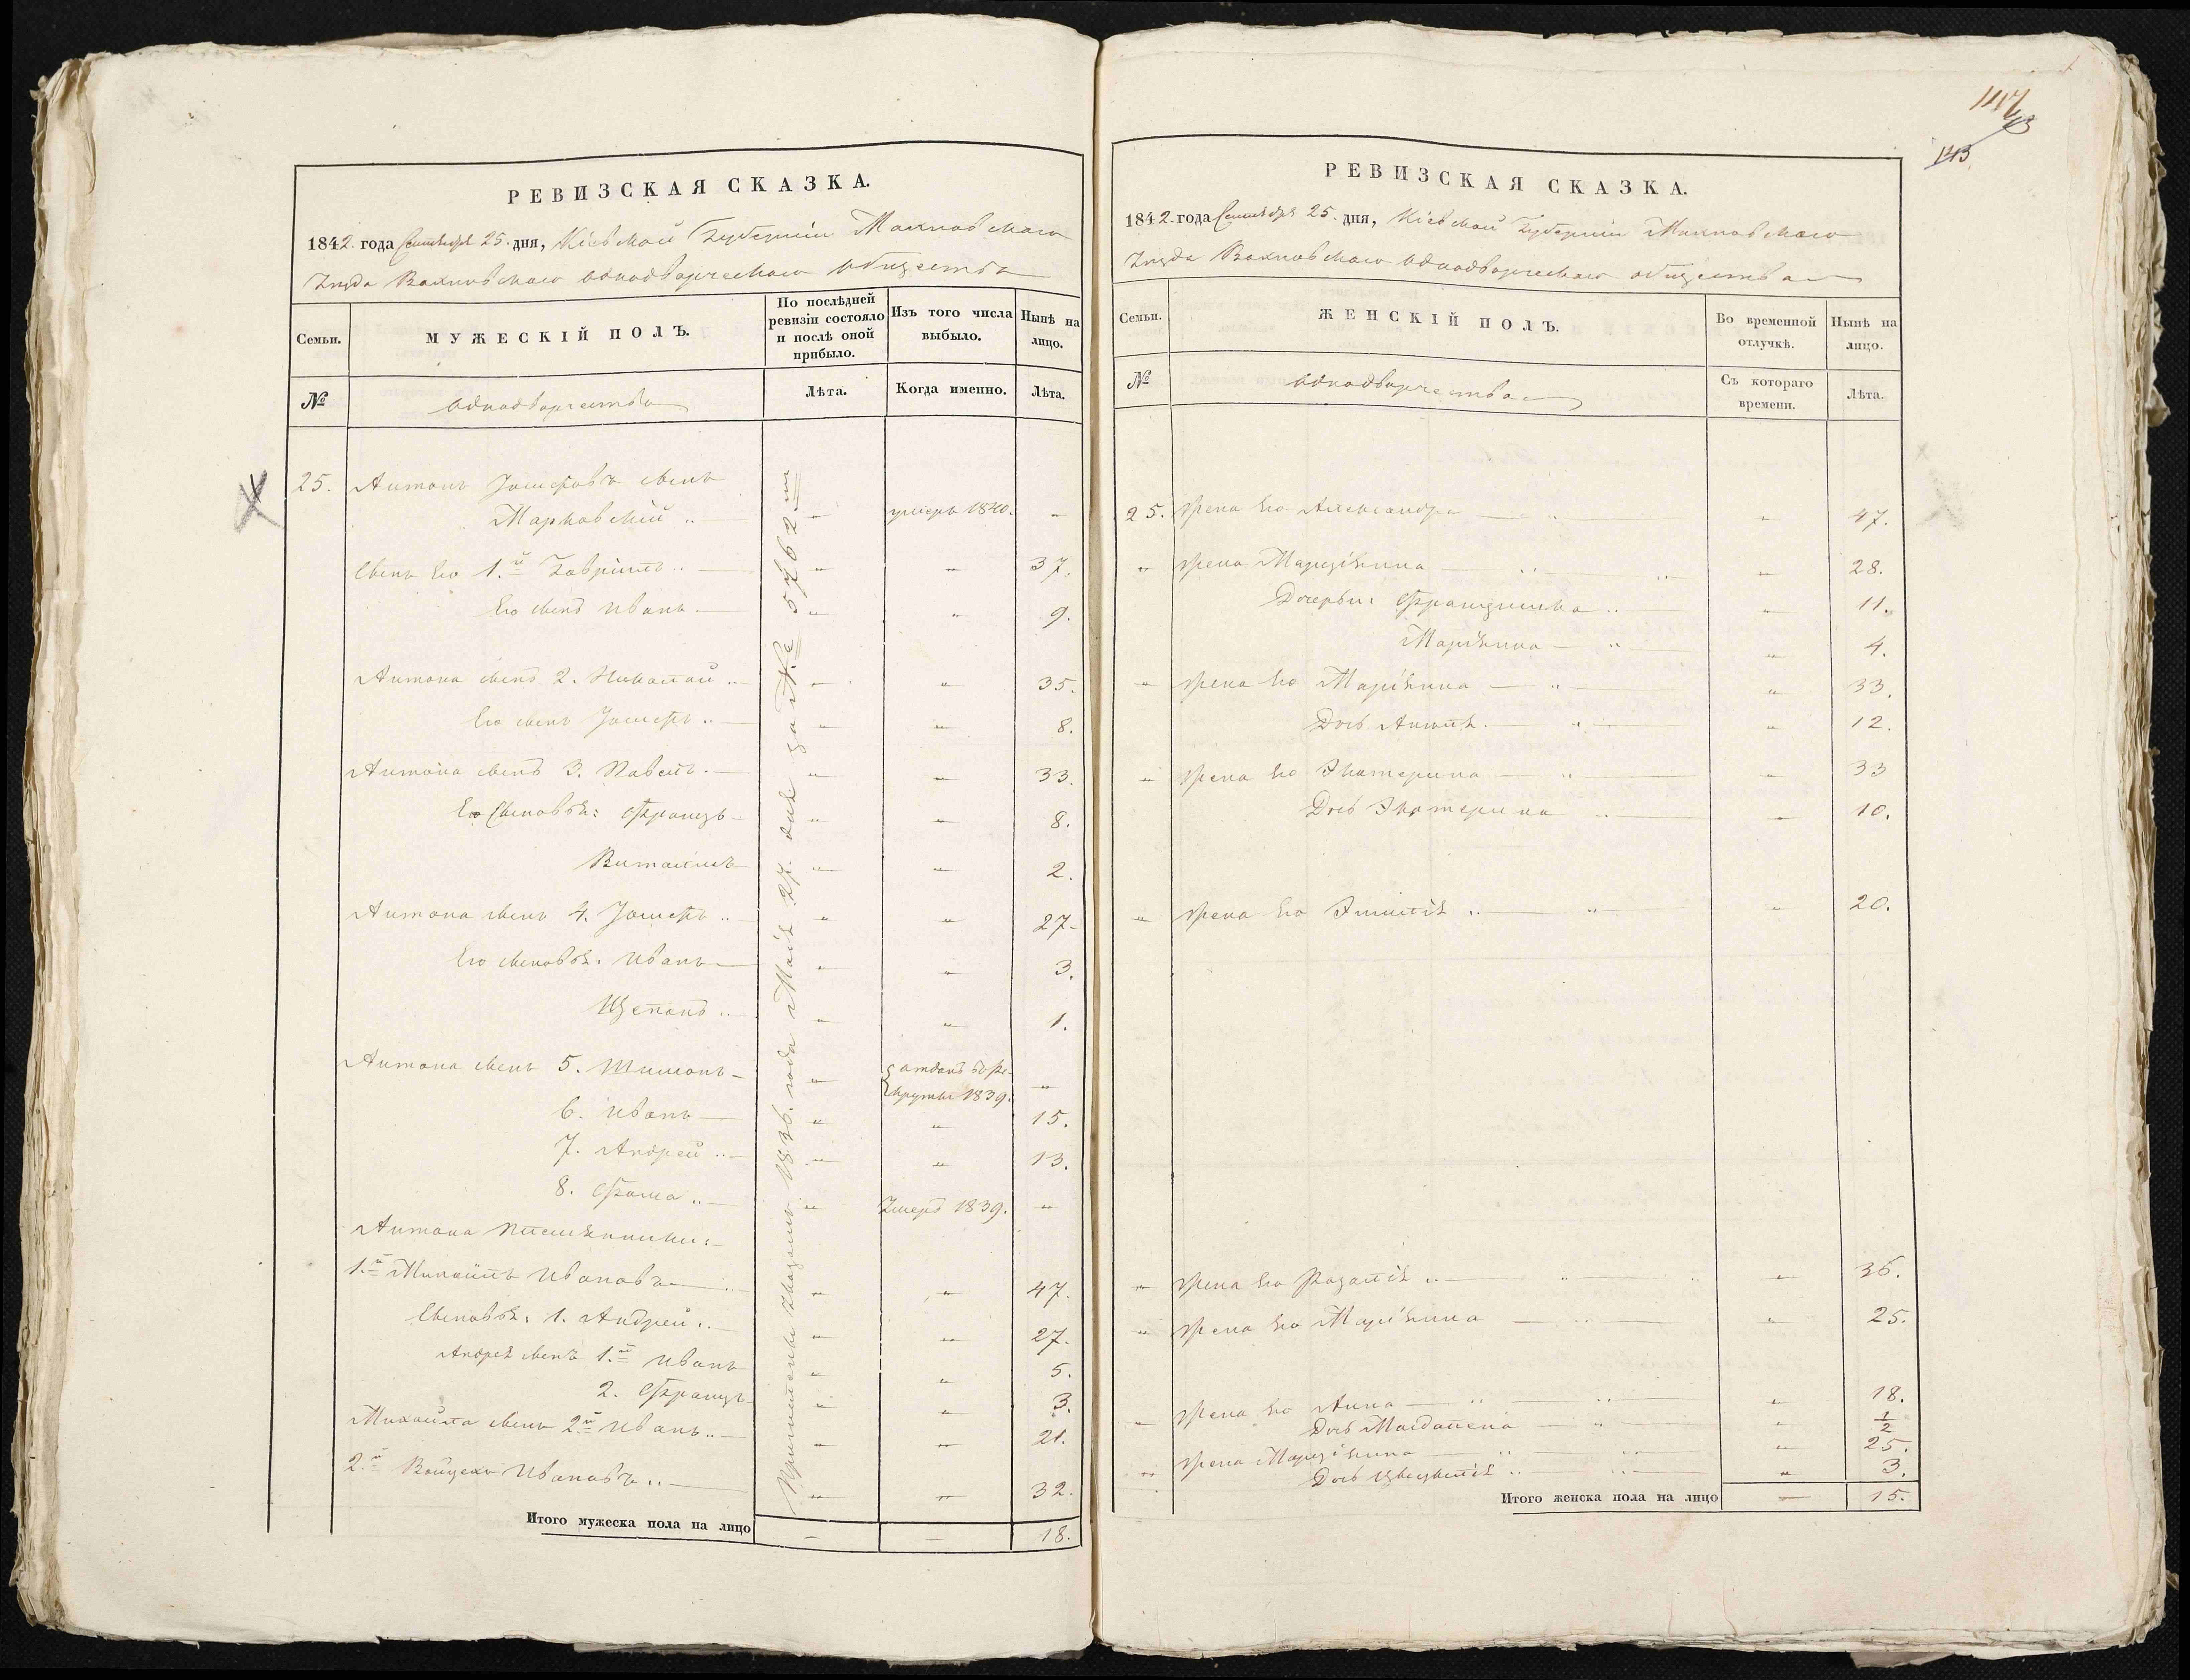 РЕВИЗСКАЯ СКАЗКА.
1842. года Сентября 25. дня, Кіевской Губерніи Махновскаго
Уезда Вахновскаго однодворческаго общества
Семьи.
МУЖЕСКІЙ ПОЛЪ.
По послѣдней ревизіи состояло и послѣ оной прибыло.
Изъ того числа выбыло.
Нынѣ на лицо.
№
однодворчества
Лѣта.
Когда именно.
Лѣта.
25. Антонъ Іосифовъ сынъ
Марковскій .. " умеръ 1840. "
сынъ Его 1.й Гаврiилъ .. " " 37.
Его сынъ Иванъ " " 9.
Антона сынъ 2. Николай .. " " 35.
Его сынъ Іосифъ .. " " 8.
Антона сынъ 3. Павелъ. " " 33.
Его Сыновья: Францъ " " 8.
Виталисъ " " 2.
Антона сынъ 4. Іосифъ .. " " 27.
Его сыновья: Иванъ " " 3.
Щепанъ .. " " 1.
Антона сынъ 5. Шимонъ " отданъ въ Ре-
круты 1839. "
6. Иванъ " " 15.
7. Андрей .. " " 13.
8. Фома .. " Умеръ 1839. "
Антона Племянники:
1.й Михаилъ Ивановъ " " 47.
Сыновья: 1. Андрей .. " " 27.
Андрея сынъ 1.й Иванъ " " 5.
2. Францъ " " 3.
Михайла сынъ 2.й Иванъ .. " " 21.
2.й Войцехъ Ивановъ .. " " 32.
Причислены Указомъ 1836. года Мая 27. дня за № 5762 м
Итого мужеска пола на лицо — — 18.
117
113
РЕВИЗСКАЯ СКАЗКА.
1842. года Сентября 25. дня, Кіевской Губерніи Махновскаго
Уезда Вахновскаго однодворческаго общества
Семьи.
ЖЕНСКІЙ ПОЛЪ.
Во временной отлучкѣ.
Нынѣ на лицо.
№
однодворчества
Съ котораго времени.
Лѣта.
25. Жена Его Александра " 47.
" Жена Марціянна " 28.
Дочерьи: Францишка .. " 11.
Маріянна " 4.
" Жена Его Маріянна " 33.
Дочь Анеля. " 12.
" Жена Его Экатерина " 33
Дочь Экатерина " 10.
" Жена Его Эмилія .. " 20.
" Жена Его Розалія .. " 36.
" Жена Его Маріянна " 25.
" Жена Его Анна " 18.
Дочь Магдалена " 1/2
" Жена Марціянна " 25.
Дочь .. " 3.
Итого женска пола на лицо — 15.